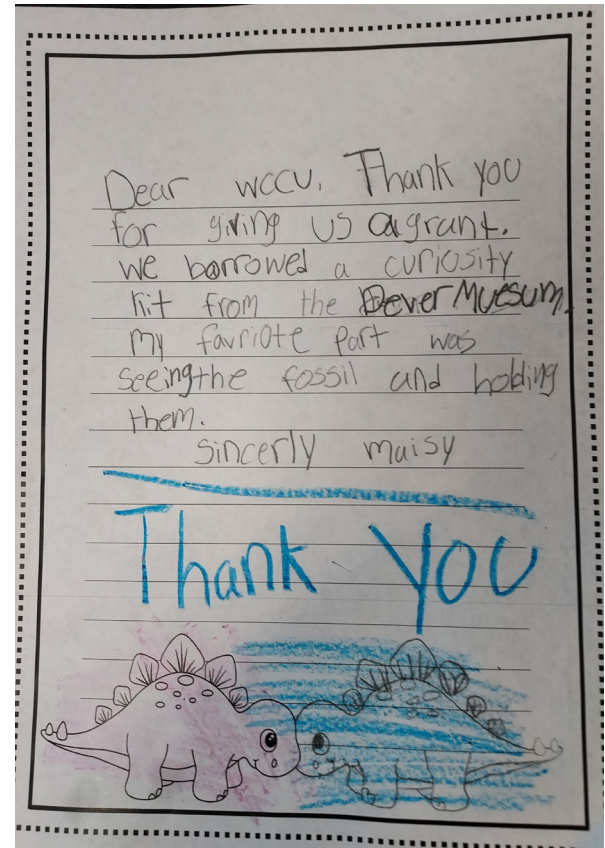 Dear wccu. Thank you
for giving us a grant.
we borrowed a curiosity
kit from the Dever Muesum.
my favriote part was
seeing the fossil and holding
them.
sincerly maisy
Thank You